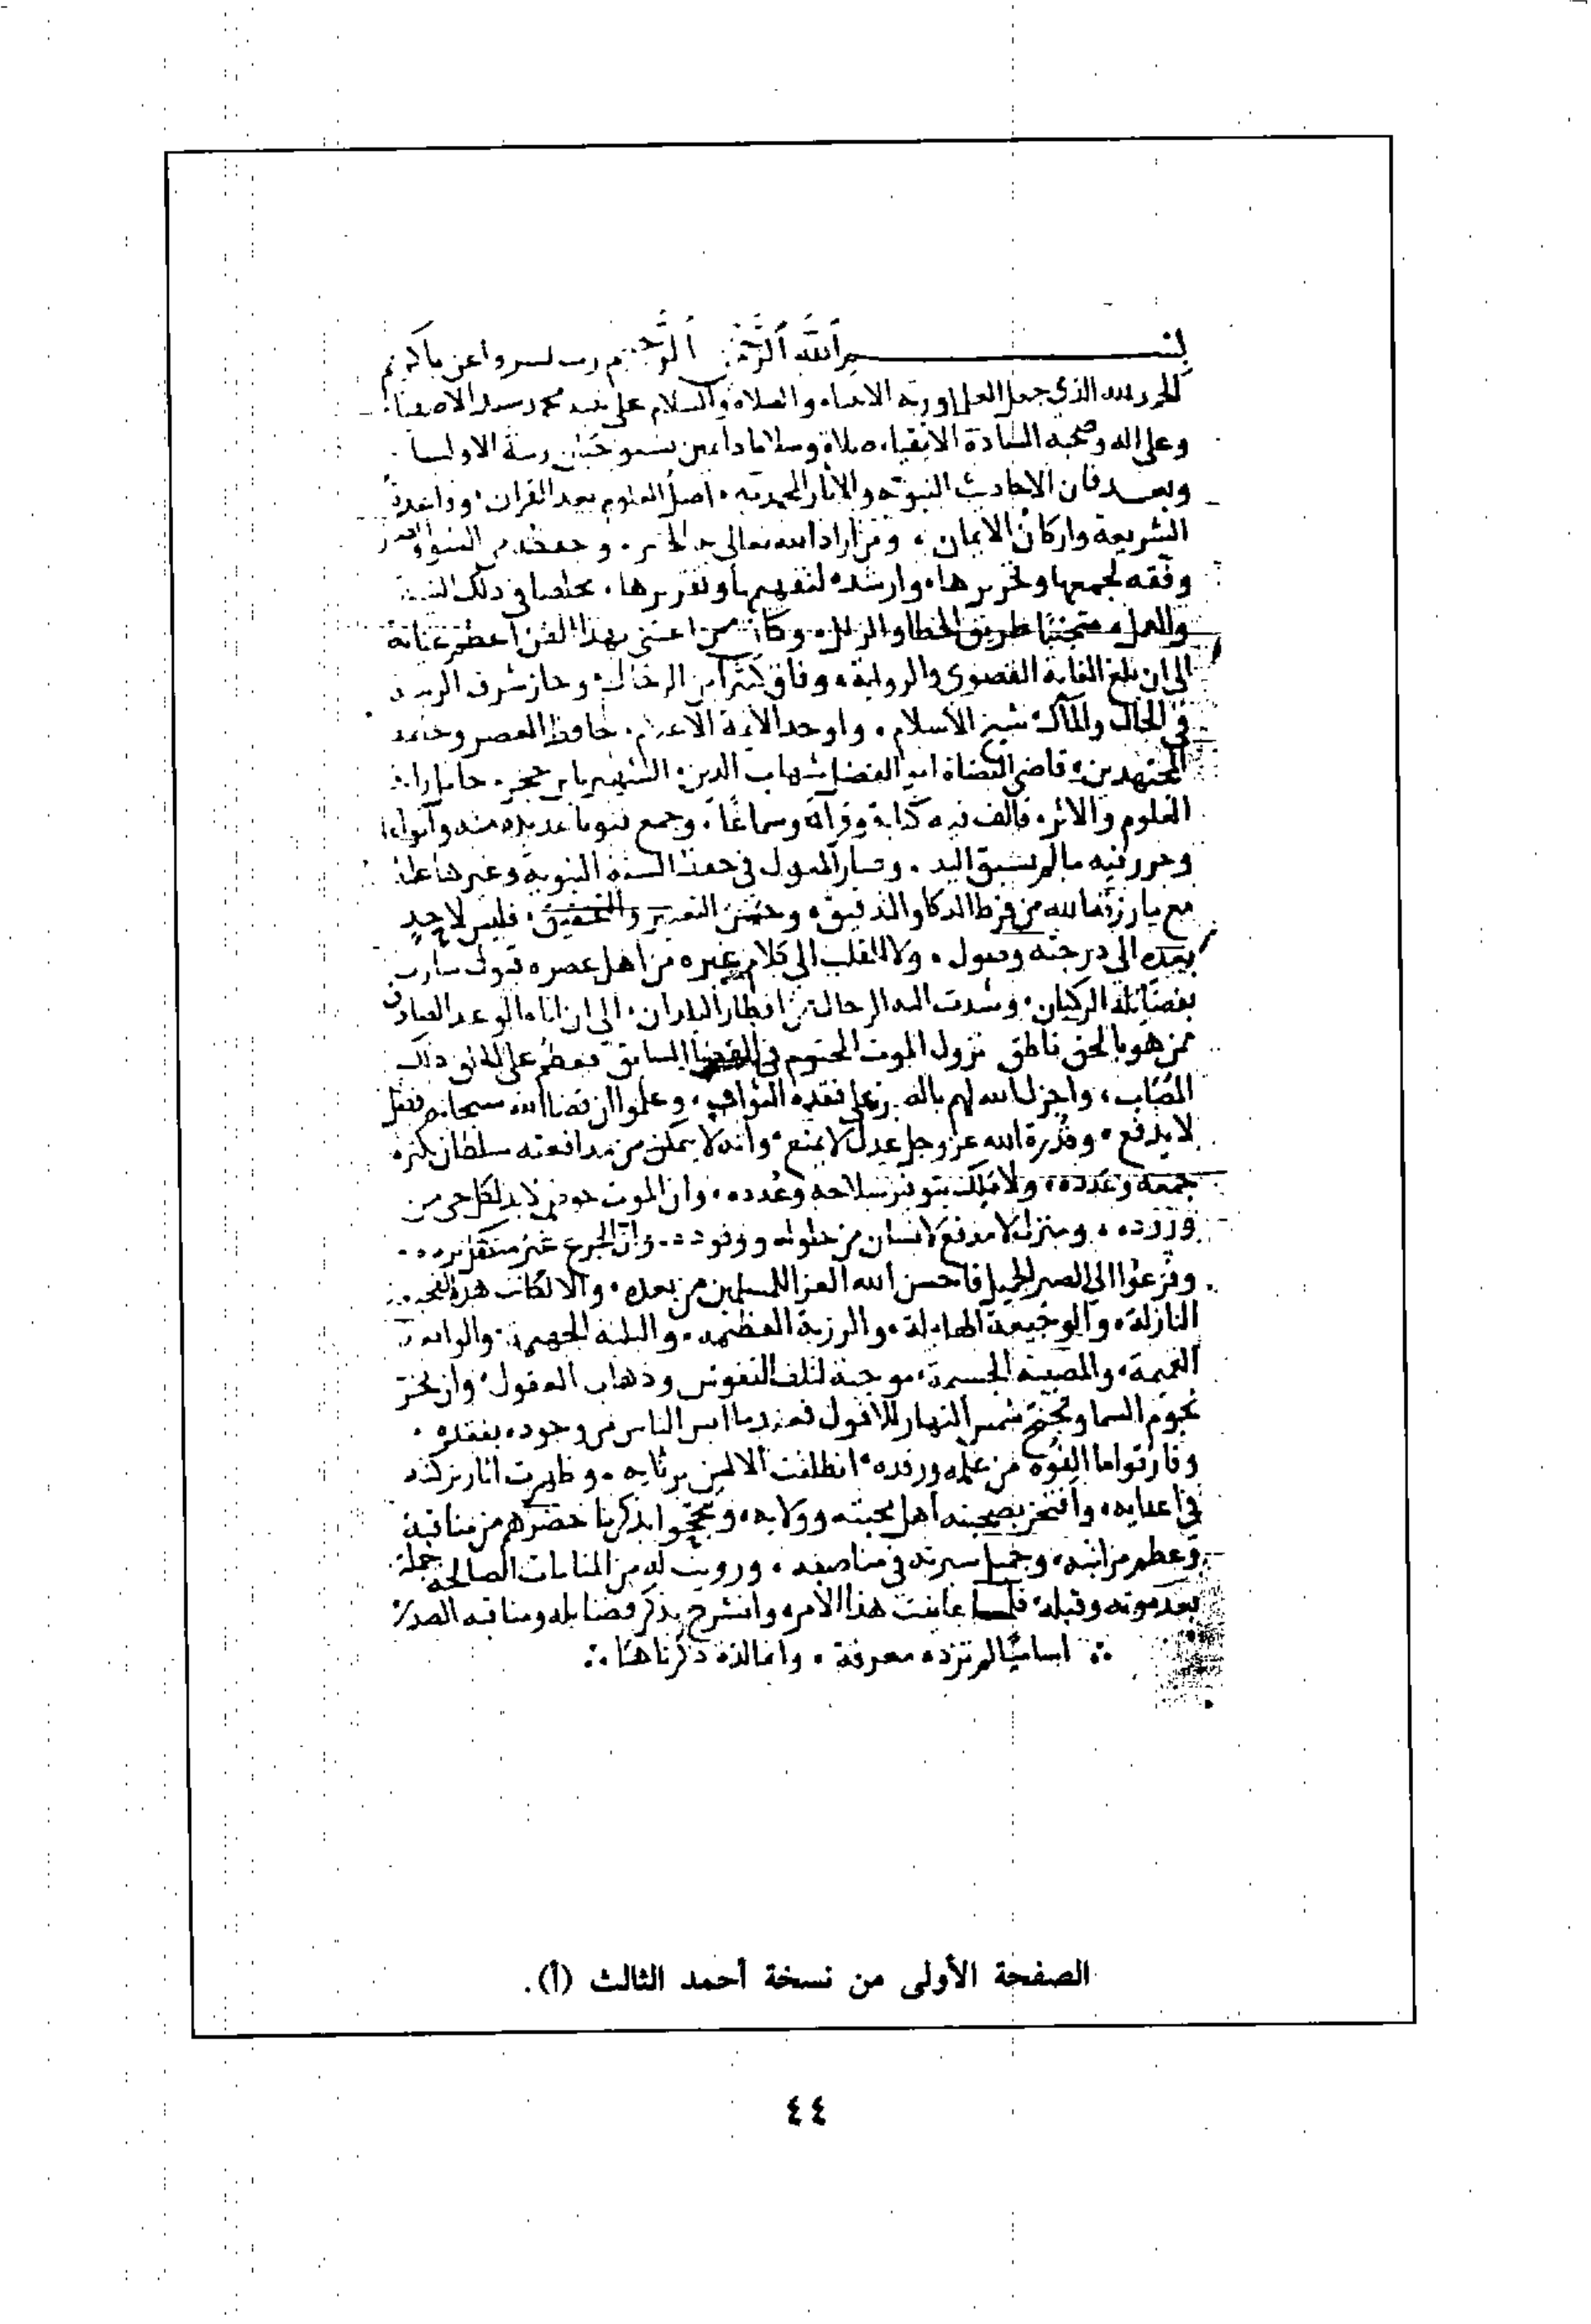 بسم الله الرحمن الرحيم رب يسر وأعن يا كريم
الحمد لله الذي جعل العلماء ورثة الانبياء والصلاة والسلام على نبيه محمد سيد الاصفياء
وعلى اله وصحبه السادة الاتقياء، صلاة وسلاما دائمين
وبعد فان الاحاديث النبوية والآثار المحمدية، اصل العلوم بعد القرآن، وقاعدة
الشريعة واركان الايمان، ومن اراد الله تعالى به الخير، وحفظه من السوء
وفقه لجمعها وتحريرها، وارشده لتفهيمها وتقريرها، مخلصا في ذلك النية
والعمل، متجنبا طريق الخطا والزلل، وكان ممن اعتنى بهذا الفن اعظم عناية
الى ان بلغ الغاية القصوى والرواية، وفاق كثيرا من الرجال، وحاز شرف
في الحال والمآل، شيخ الاسلام، واوحد الأئمة الاعلام، حافظ العصر وخاتمة
المجتهدين، قاضي القضاة ابو الفضل شهاب الدين، الشهير بابن حجر، حامل راية
العلوم والاثر، فألف فيه كتابة وقرآة وسماعا، وجمع فنونا عديدة منه وأنواعا
وحرر فيه ما لم يسبق اليه، وصار المعول في حفظ السنة النبوية وغيرها عليه
مع ما رزقه الله من فرط الذكا والتدقيق، وحسن التعبير والتحقيق، فليس لاحد
بعده الى درجته وصول، ولا للقلب الى كلام غيره من اهل عصره قبول، سارت
بفضائله الركبان، وشدت اليه الرحال من اقطار البلدان، الى ان اتاه الوعد الصادق
ممن هو بالحق ناطق نزول الموت المحتوم في القضا السابق فعظم على الخلق ذلك
المصاب، واجزل الله لهم بالصبر على فقده الثواب، وعلموا ان قضا الله سبحانه فصل
لا يدفع، وقدرة الله عز وجل عدل لا يمنع، وانه لا يمكن من مدافعته سلطان بكثرة
جمعه وعدده، ولا ملك بتوفر سلاحه وعدده، وان الموت حوض لا بد لكل حي من
وروده، ومنزل لا مدفع لانسان من حلوله ووفوده، وان الجزع غير
وفزعوا الى الصبر الجميل فاحسن الله العزا للمسلمين من بعده، والا لكانت هذه
النازلة، والوجيعة الهائلة، والرزية العظيمة، والبلية الجهيمة، والواقعة
العميمة، والمصيبة الجسيمة، موجبة لتلف النفوس وذهاب العقول، وان تخر
نجوم السما وتجنح شمس النهار للافول فعندما ايس الناس من وجوده، بفقده،
وفارقوا ما الفوه من علمه ورفده، انطلقت الالسن برثايه، وظهرت اثار بركته
في اعدايه، وافتخر بصحبته اهل محبته وولايه، وتبجحوا بذكر ما حضرهم من مناقبه
وعظم مراتبه، وجميل سيرته في مناصبه، ورويت له من المنامات الصالحة جملة
بعد موته وقبله، فلما عاينت هذا الأمر، وانشرح بذكر فضايله ومناقبه الصدر
اساميا لم تزده معرفة، وانما لذة ذكرناها
الصفحة الأولى من نسخة أحمد الثالث (أ).
٤٤